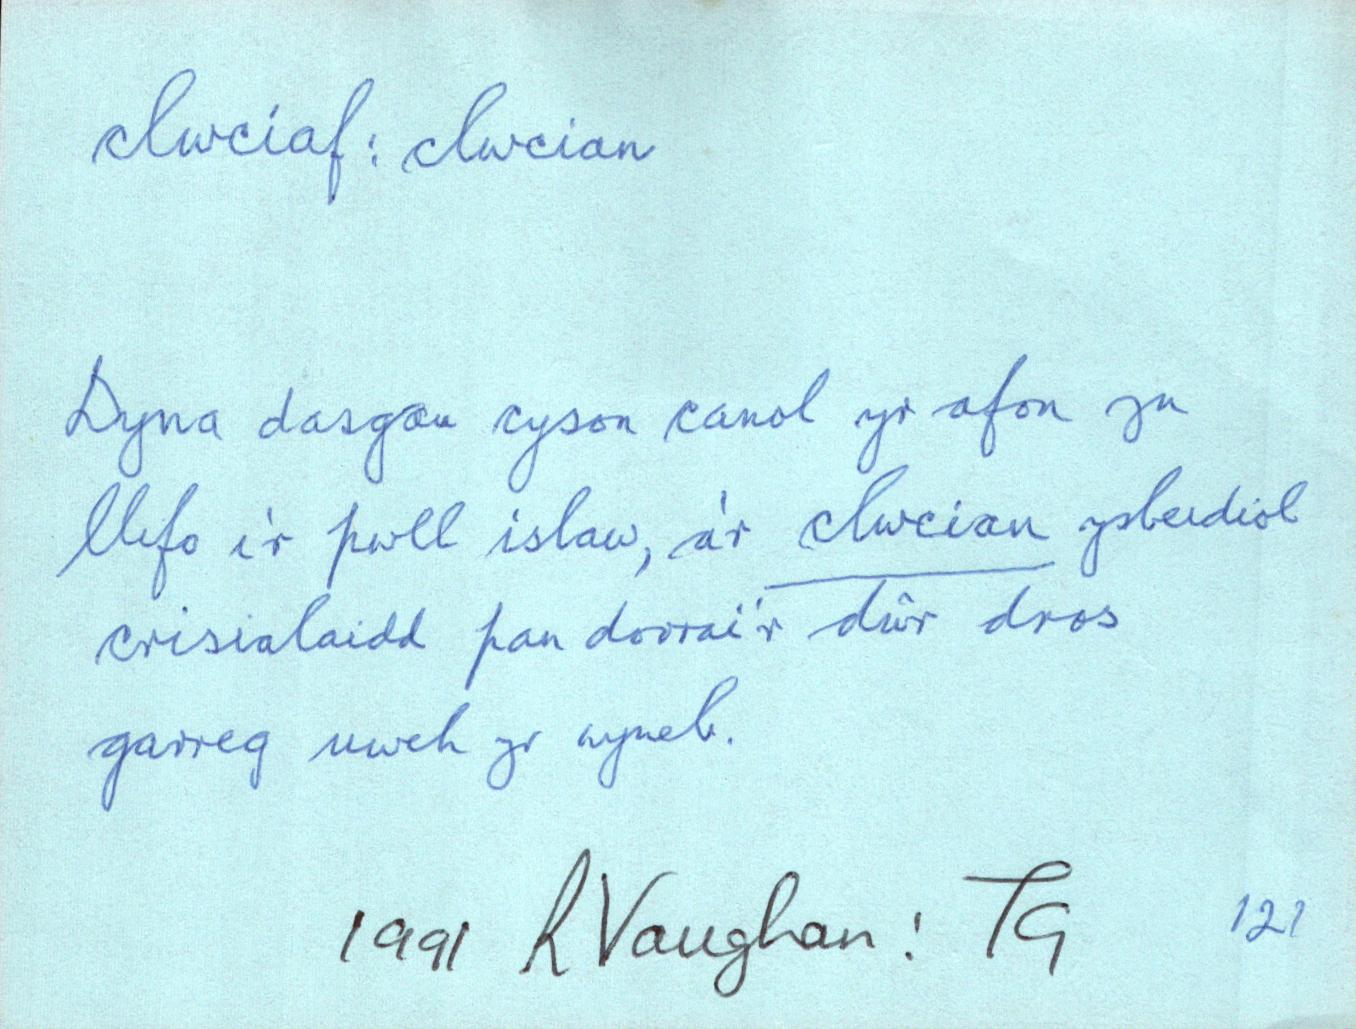 clwciaf: clwcian
Dyna dasgau cyson canol yr afon yn
llifo i'r pwll islaw, a'r clwcian ysbeidiol
crisialaidd pan dorrai'r dŵr dros
garreg uwch yr wyneb.
1991 R Vaughan: TG 121